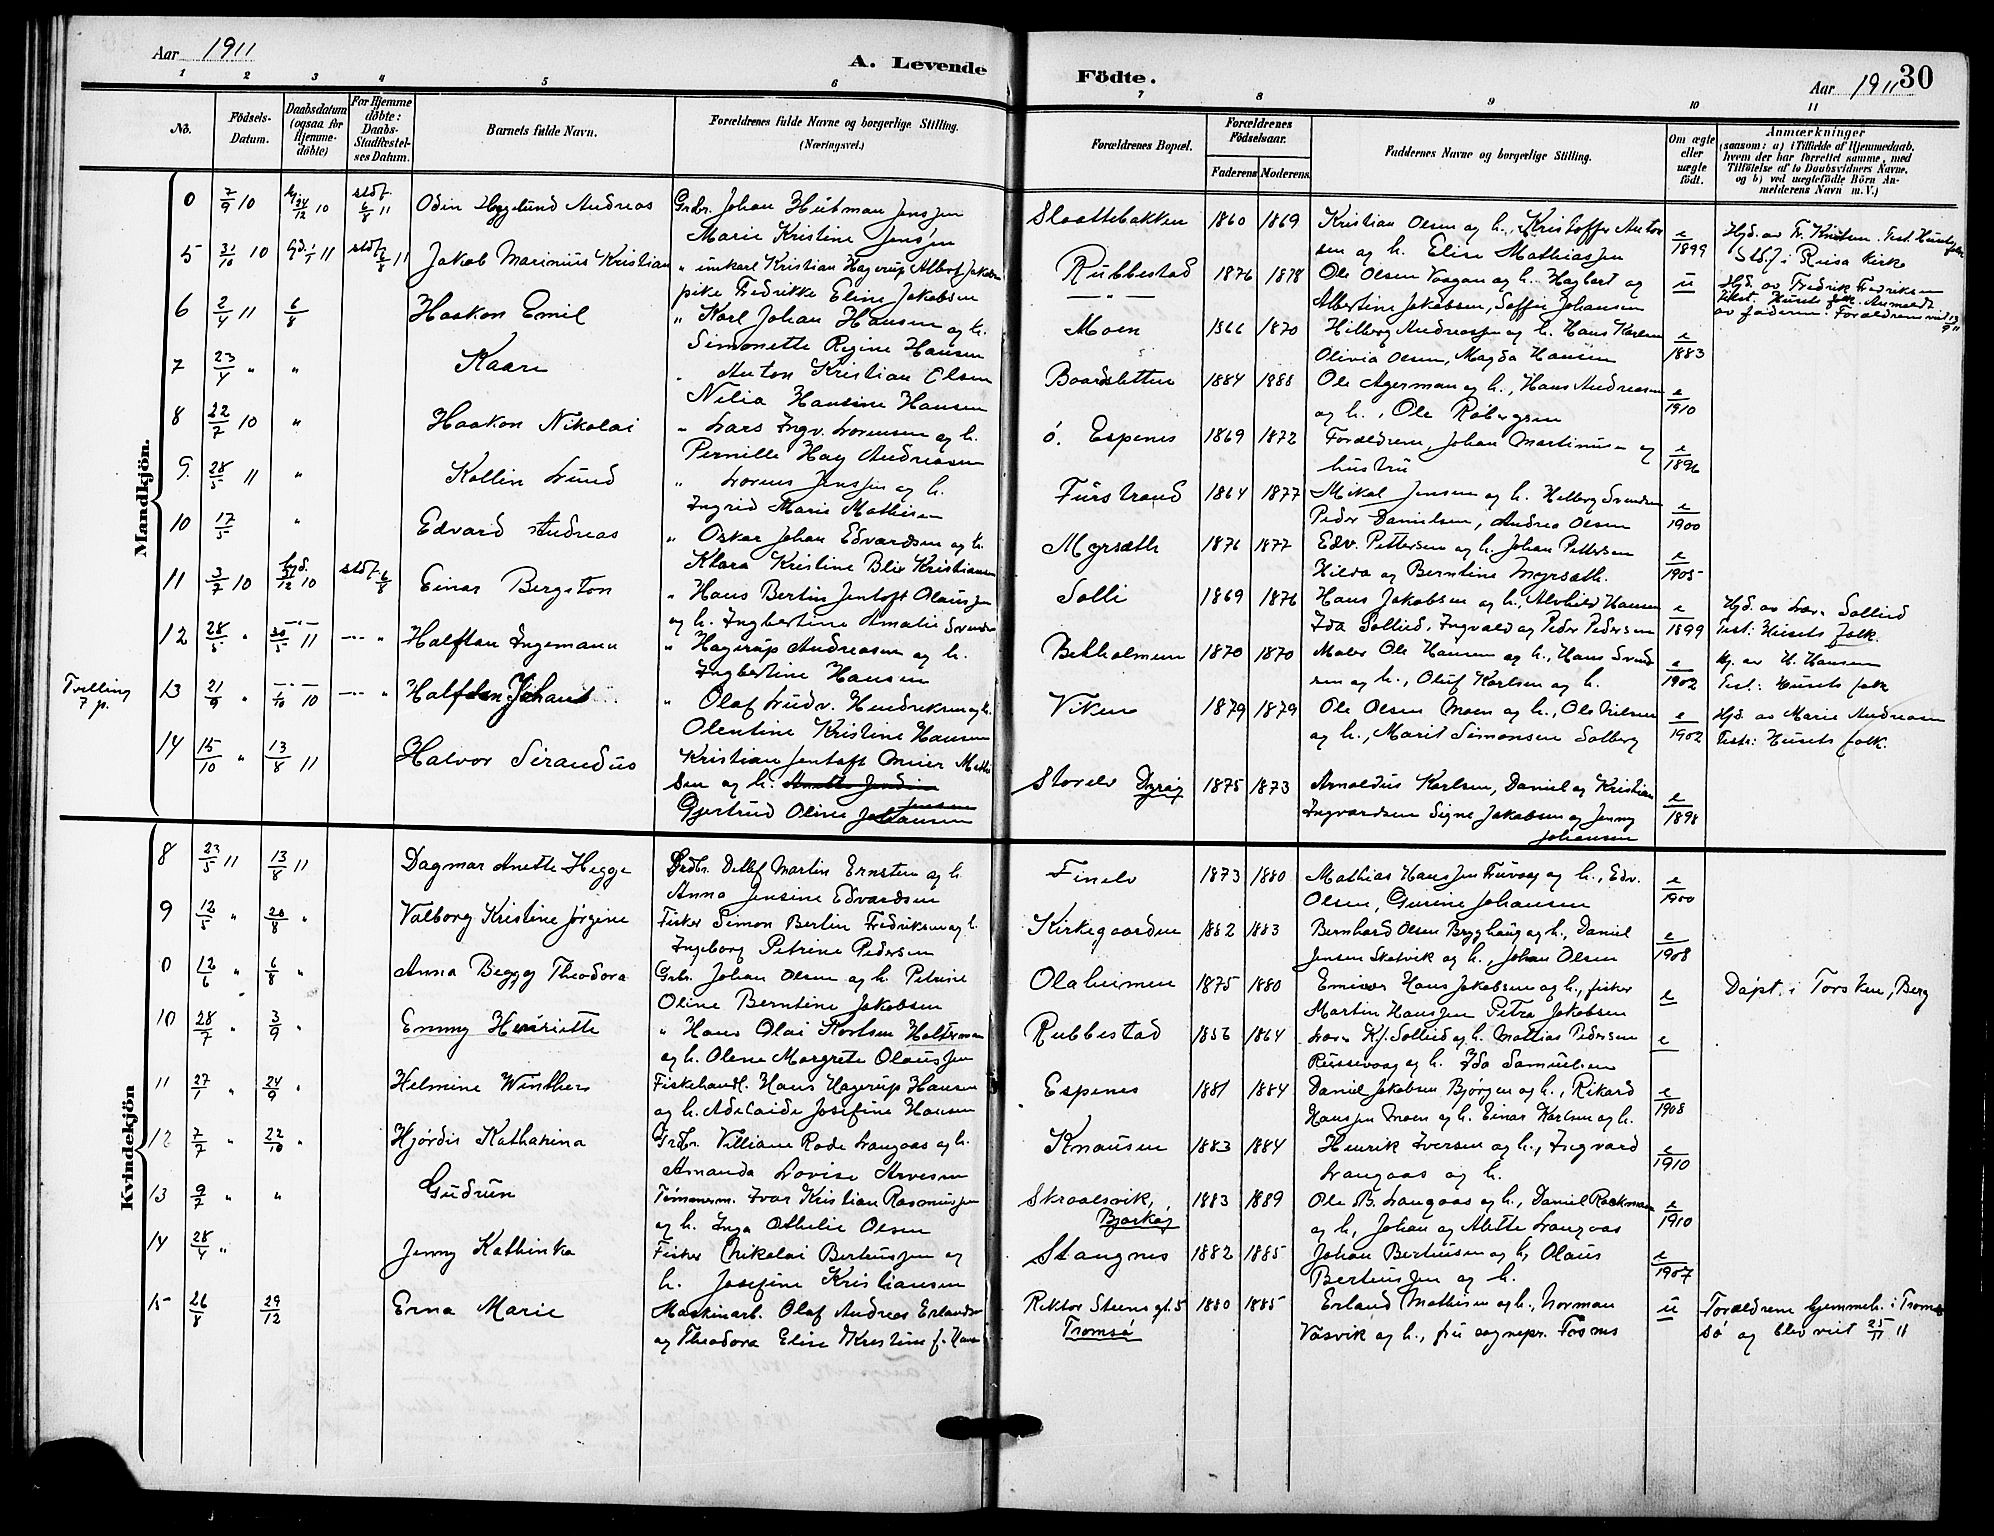 Aar 1911
A. Levende
Födte.
Aar 1911
30
1 2 3 4 5 6 7 8 9 10 11
No.
Födsels-
Datum.
Daabsdatum
(ogsaa for
Hjemme-
döbte)
For Hjemme
döbte:
Daabs-
Stadfæstel-
ses Datum.
Barnets fulde Navn.
Forældrenes fulde Navne og borgerlige Stilling.
(Næringsvei.)
Forældrenes Bopæl.
Forældrenes
Födselsaar.
Faderens Moderens
Faddernes Navne og borgerlige Stilling.
Om ægte
eller
uægte
födt.
Anmærkninger
(saasom: a) i Tilfælde af Hjemmedaab,
hvem der har forrettet samme, med
Tilföielse af to Daabsvidners Navne,
og b) ved uægtefödte Börn An-
melderens Navn m. V.)
Mandkjön.
0 7/9 10 24/12 10 stdf. 6/8 11 Odin Hygelund Andreas Grdbr. Johan Hutman Jensen Slaattebakken 1860 1869 Kristian Olsen og h., Kristoffer Anton
Marie Kristine Jensen sen og h. Elise Mathiassen e/1899 Stdf i Reisa kirke
5 31/10 10 11 stdf. 6/8 11 Jakob Marinius Kristian " unkarl Kristian Hagerup Albert Jakobsen Rubbestad 1876 1878 Ole Olsen Vaagan og h. Hagbart og u Hjd. av Fredrik Fredriksen
pike Fredrikke Eline Jakobsen Albertine Jakobsen, Soffie Johansen Test. Husets folk. Anmeldt
av faderen. Forældrene viet 13/9 11
6 2/4 11 6/8 Haakon Emil " Karl Johan Hansen og h. Moen 1866 1870 Hilberg Andreassen og h. Hans Karlsen
Simonette Regine Hansen Olivia Olsen, Magda Hansen e/1883
7 23/4 " " Kaare " Anton Kristian Olsen Baardsletten 1884 1888 Ole Agerman og h., Hans Andreasen
Nilia Hansine Hansen og h., Ole Robergsen e/1910
8 22/7 10 " Haakon Nikolai " Lars Ingv. Lorensen og h. ö. Espenes 1869 1872 Forældrene, Johan Martinusen og
Pernille Hay Andreasen hustru e/1896
9. 28/5 11 " Kollin Lund " Lorens Jensen og h. Furstrand 1864 1877 Mikal Jensen og h. Helberg Svendsen
Ingrid Marie Mathisen Peder Danielsen, Andrea Olsen e/1900
10 17/5 " Edvard Andreas " Oskar Johan Edvardsen og h. Myrsæth 1876 1877 Edv. Pettersen og h. Johan Pettersen
Klara Kristine Blix Kristiansen Hilda og Berntine Myrsæth. e/1905
11 3/7 10 hjd. 31/12 10 stdf. 6/8 Einar Bergston " Hans Bertin Jentoft Olaussen Solli 1869 1876 Hans Jakobsen og h., Alvhild Hansen
og h. Ingbertine Amalie Svendsen Ida Sollied, Ingvald og Peder Pedersen e/1899 Hjd. av Lær. Sollied
Test: Husets folk.
12 28/5 " 30/5 11 --- " Halftan Ingemann " Hagerup Andreasen og h. Bekholmen 1870 1870 Maler Ole Hansen og h., Hans Svend
Ingbertine Hansen sen og h., Oluf Karlsen og h. e/1902 hj. av H. Hansen
Test: Husets folk
Tvilling
7 p. 13 21/9 " 1/10 10 --- " Halfdan Johans " Olaf Ludv. Hendriksen og h. Viken 1879 1879 Ole Olsen Moen og h., Ole Nilsen
Olentine Kristine Hansen og h., Marit Simonsen Solberg e/1902 Hjd av Marie Andreasen
Testr: Husets folk.
14 15/10 " 13/8 11 Halvor Sirandus Kristian Jentoft Meier Mathi
sen og h. Storelv Dyröy 1875 1873 Arnoldus Karlsen, Daniel og Kristian
Gjertrud Oline Jensen Ingvardsen Signe Jakobsen og Jenny e/1898
Johansen
Kvindekjön
8 23/5 11 13/8 11 Dagmar Anette Hegge Grdbr. Detlef Martin Ernsten og h. Finelv 1873 1880 Mathias Hanssen Furvaag og h., Edv.
Anna Jensine Edvardsen Olsen, Gurine Johansen e/1900
9 12/5 " 20/8 " Valborg Kristine Jørgine Fisker Simon Bertin Fredriksen og h. Kirkegaarden 1882 1883 Bernhard Olsen Bryghaug og h., Daniel
Ingeborg Petrine Pedersen Jensen Skatvik og h., Johan Olsen e/1908
0 12/6 " 6/8 " Anna Beggy Theodora Grbr. Johan Olsen og h. Petrine Olaheimen 1875 1880 Emisær Hans Jakobsen og h., fisker e Døpt i Torsken, Berg
Oline Berntine Jakobsen Martin Hanssen Petra Jakobsen
10 28/7 " 3/9 " Emmy Henriette " Hans Olai Kortsen Holterman Rubbestad 1856 1864 Lærer Kf. Sollied og h. Mathias Pedersen e
og h. Olene Margrete Olaussen Russevaag og h. Ida Samuelsen
11 27/1 " 24/9 " Helmine Winthers Fiskehandl. Hans Hagerup Hansen Espenes 1881 1884 Daniel Jakobsen Bjørgen og h., Rikard
og h. Adelaide Josefine Hansen Hanssen Moen og h. Einar Karlsen og h. e/1908
12 7/7 " 22/10 " Hjørdis Katharina Grdbr. Villiam Rode Langaas og h. Knausen 1883 1884 Henrik Iversen og h., Ingvard
Amanda Lovise Arvesen Langaas og h. e/1910
13 9/7 " " Gudrun Tømmerm. Ivar Kristian Rasmussen Skroalsvik, 1883 1889 Ole B. Langaas og h., Daniel Rockman
og h. Inga Othelie Olsen Bjarkøy og h., Johan og Alette Langaas e/1910
14 28/4 " Jenny Kathinka Fisker Nikolai Bertheussen og Stangnes 1882 1885 Johan Bertheussen og h, Olaus
h. Josefine Kristiansen Bertheussen og h. e/1907
15 26/8 29/12 Erna Marie Maskinarb. Olaf Andreas Erlandsen Rektor Steens gt. 5 1880 1885 Erland Mathisen og h., Norman u Forældrene hjemmeh. i Trom
og Theodora Elise Kristine f. Hansen Tromsø Vasvik og h., fru sognepr. Fosnes sø og blev viet 25/11 11